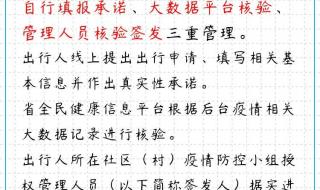 自行填报承诺、大数据平台核验、
管理人员核验签发三重管理。
出行人线上提出出行申请、填写相关基
本信息并作出真实性承诺。
省全民健康信息平台根据后台疫情相关
大数据记录进行核验。
出行人所在社区（村）疫情防控小组授
权管理人员（以下简称签发人）据实进